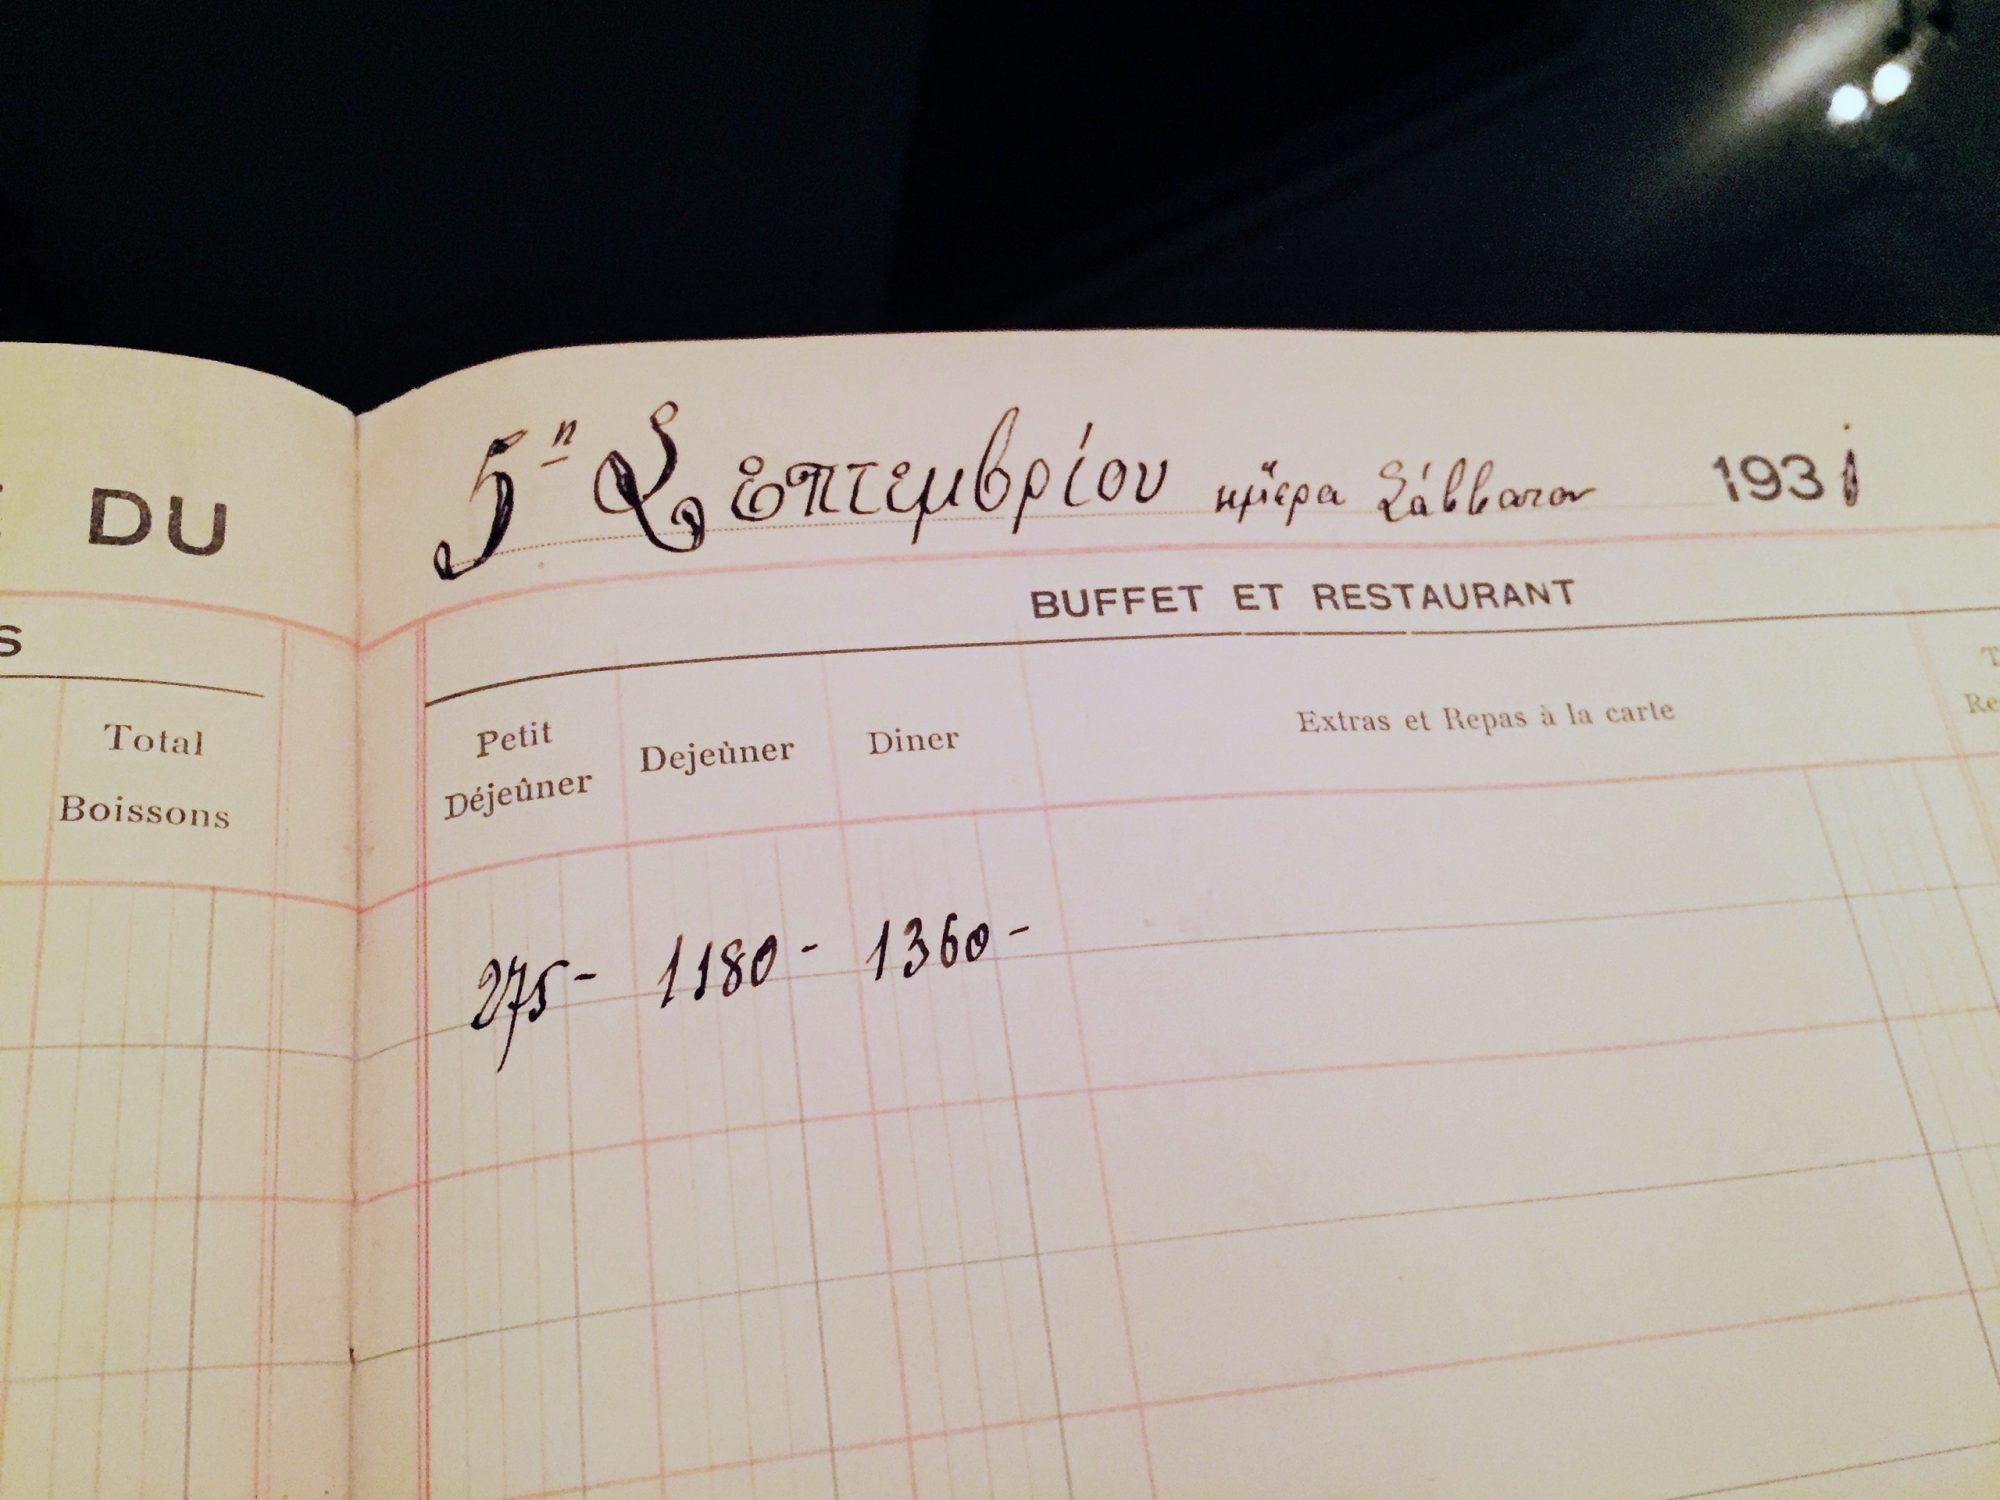 DU 5η Σεπτεμβρίου ημέρα Σάββατον 1931
S
BUFFET ET RESTAURANT
Total
Boissons
Petit
Déjeûner
Dejeùner
Diner
Extras et Repas à la carte
275- 1180- 1360-